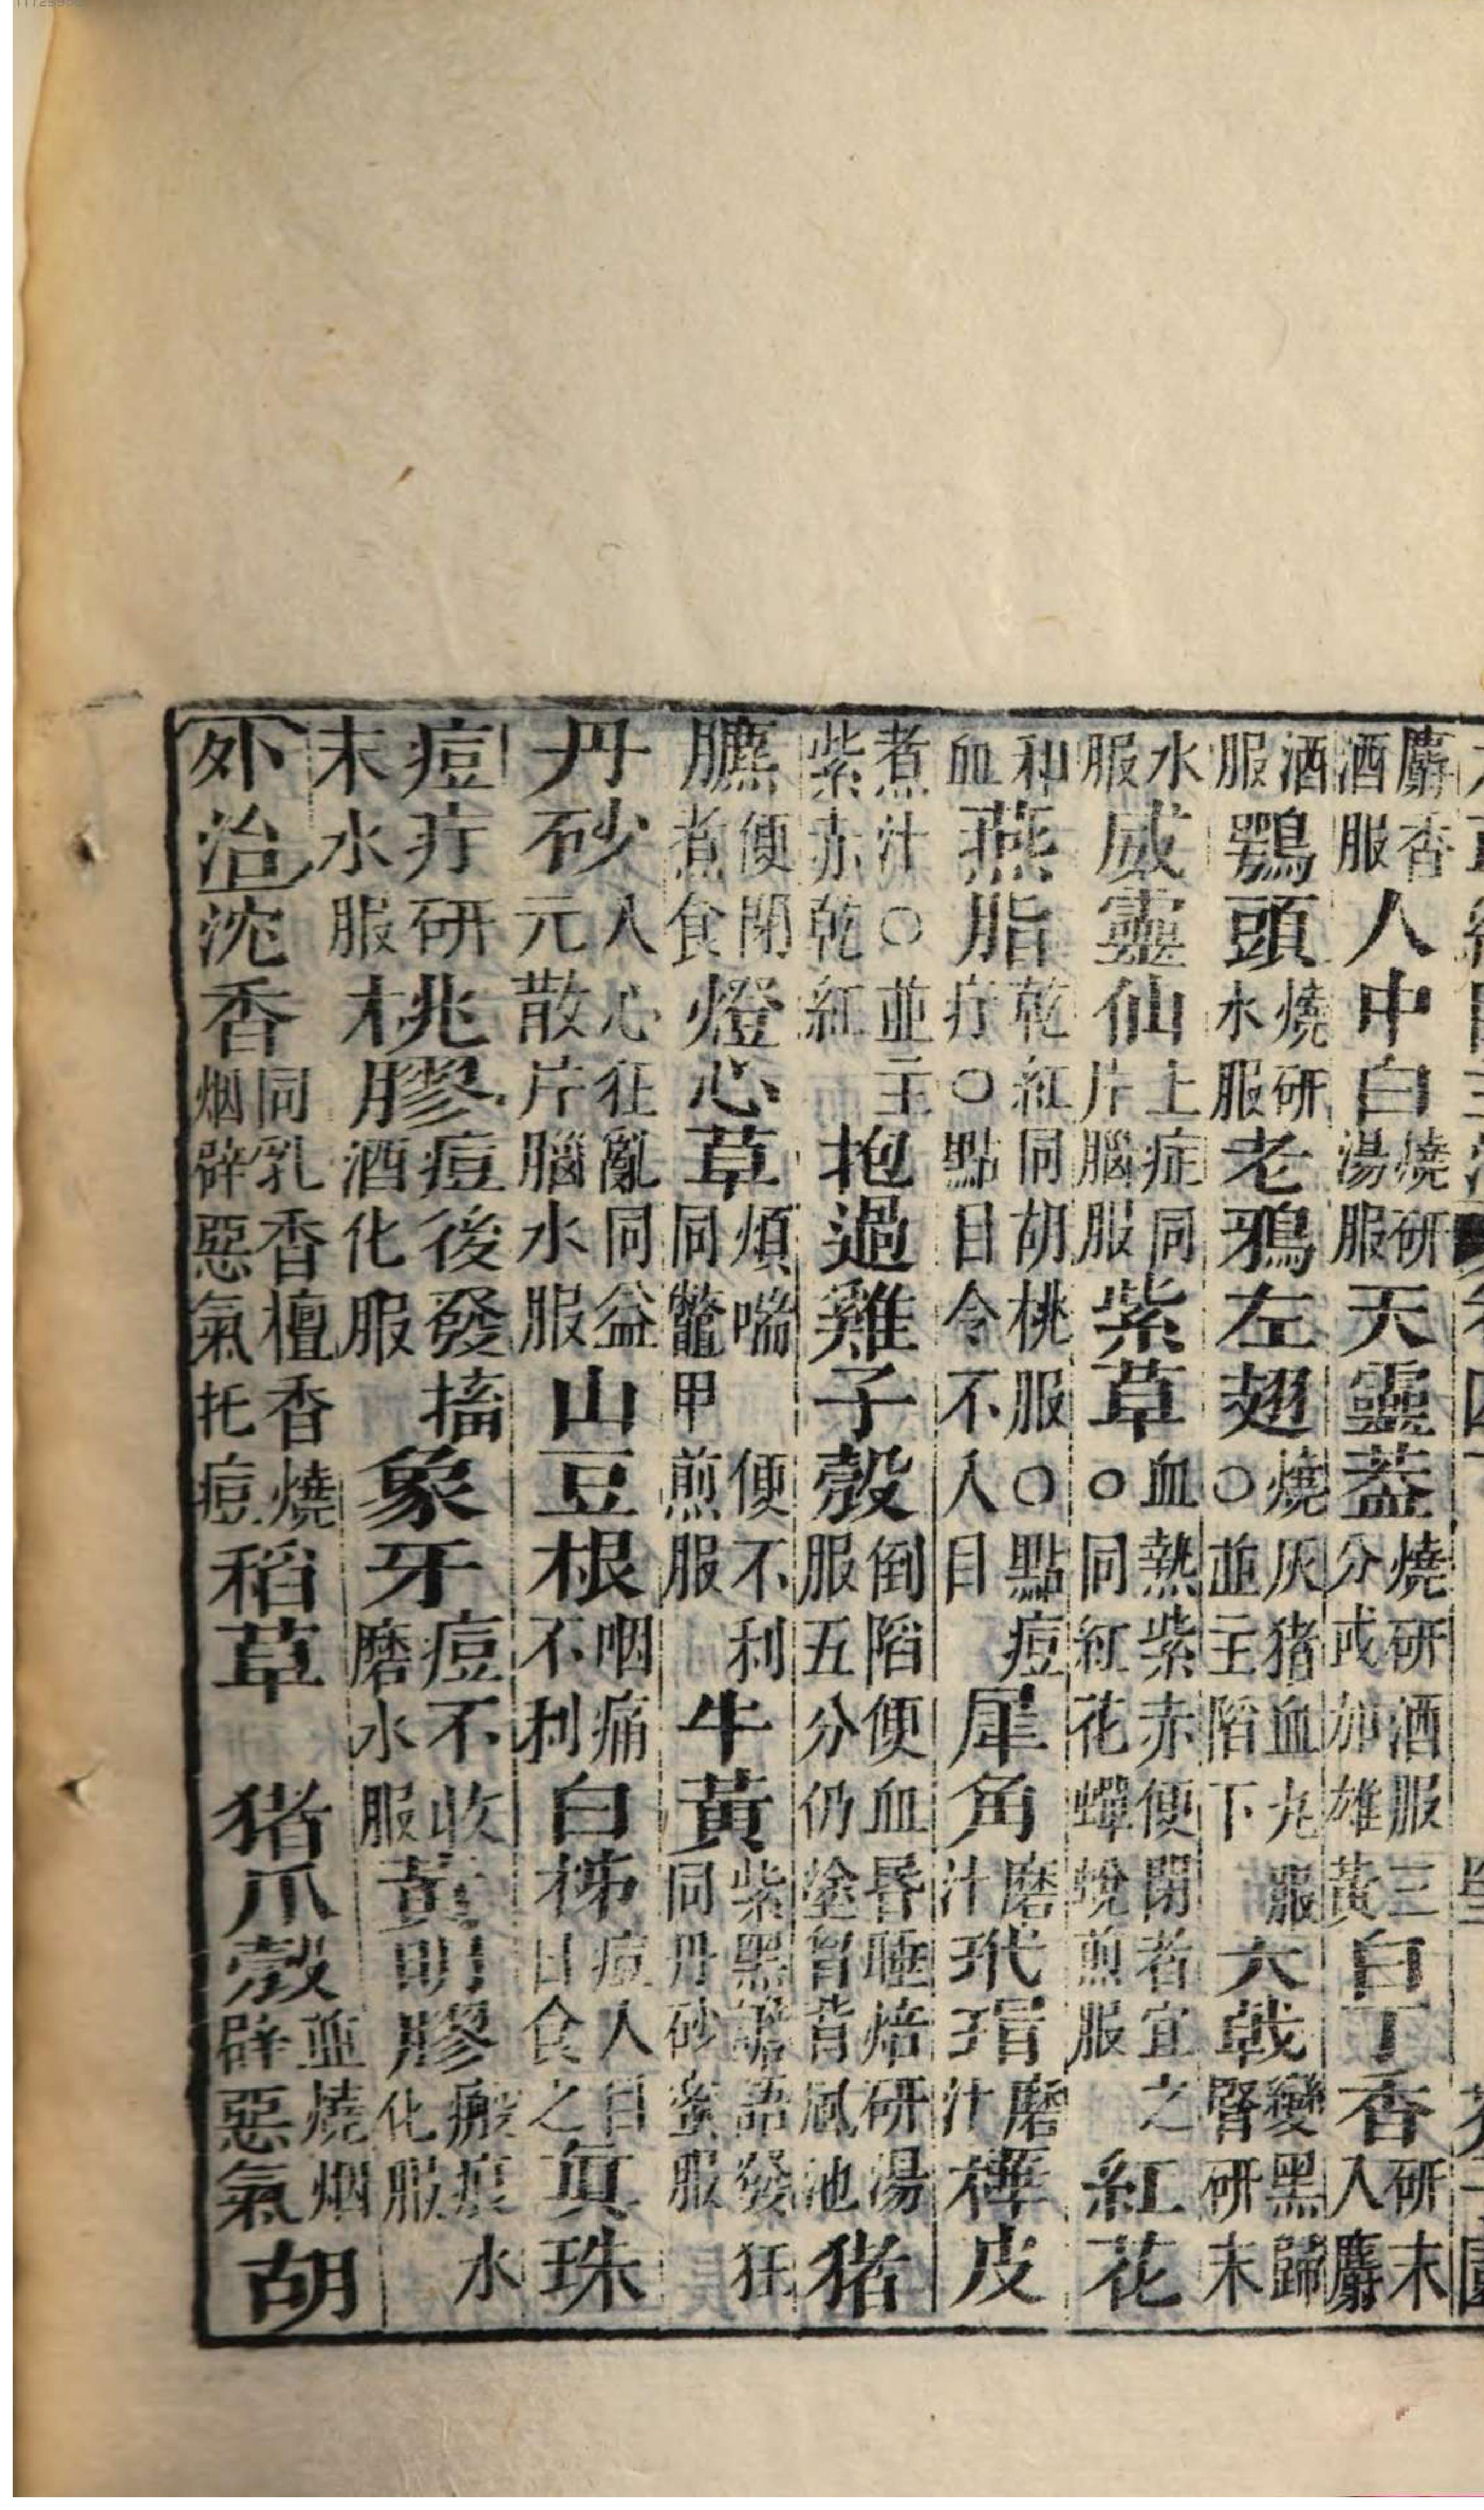 麝香酒服人中白燒研湯服天靈蓋燒研酒服三分或加雄黃白丁香研末入麝
酒服鶚頭燒研水服老鴉左翅燒灰猪血丸服○並主陷下大戟變黑歸腎研末
水服威靈仙上症同片腦服紫草血熱紫赤便閉者宜之○同紅花蟬蛻煎服紅花
和血燕脂乾紅同胡桃服○點痘疔○點目令不入目犀角磨汁玳瑁磨汁樺皮
煮汁○並主紫赤乾紅抱過雞子殼倒陷便血昏睡焙研湯服五分仍塗胷背風池猪
臕便閉煮食燈心草煩喘便不利同鼈甲煎服牛黃紫黑譫語發狂同丹砂蜜服
丹砂入心狂亂同益元散片腦水服山豆根咽痛不利白柹痘入目日食之眞珠
痘疔研末水服桃膠痘後發搐酒化服象牙痘不收磨水服黃明膠瘢痕水化服
外治沈香同乳香檀香燒烟辟惡氣托痘稻草猪爪殼並燒烟辟惡氣胡